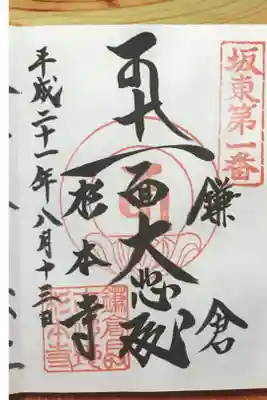 坂東第一番
鎌倉
十一面大悲殿
杉本寺
平成二十一年八月十三日